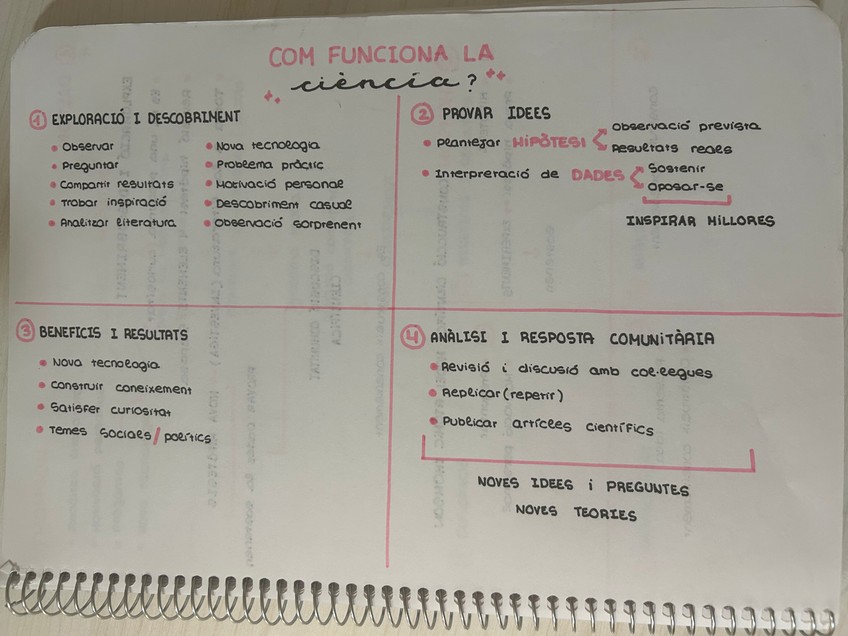 COM FUNCIONA LA
ciència?
1 EXPLORACIÓ I DESCOBRIMENT
• Observar
• Preguntar
• Compartir resultats
• Trobar inspiració
• Analitzar literatura
• Nova tecnologia
• Problema pràctic
• Motivació personal
• Descobriment casual
• Observació sorprenent
2 PROVAR IDEES
• Plantejar HIPÒTESI
Observació prevista
Resultats reals
• Interpretació de DADES
Sostenir
Oposar-se
INSPIRAR MILLORES
3 BENEFICIS I RESULTATS
• Nova tecnologia
• Construir coneixement
• Satisfer curiositat
• Temes socials/polítics
4 ANÀLISI I RESPOSTA COMUNITÀRIA
• Revisió i discusió amb col·legues
• Replicar (repetir)
• Publicar artícles científics
NOVES IDEES i PREGUNTES
NOVES TEORIES